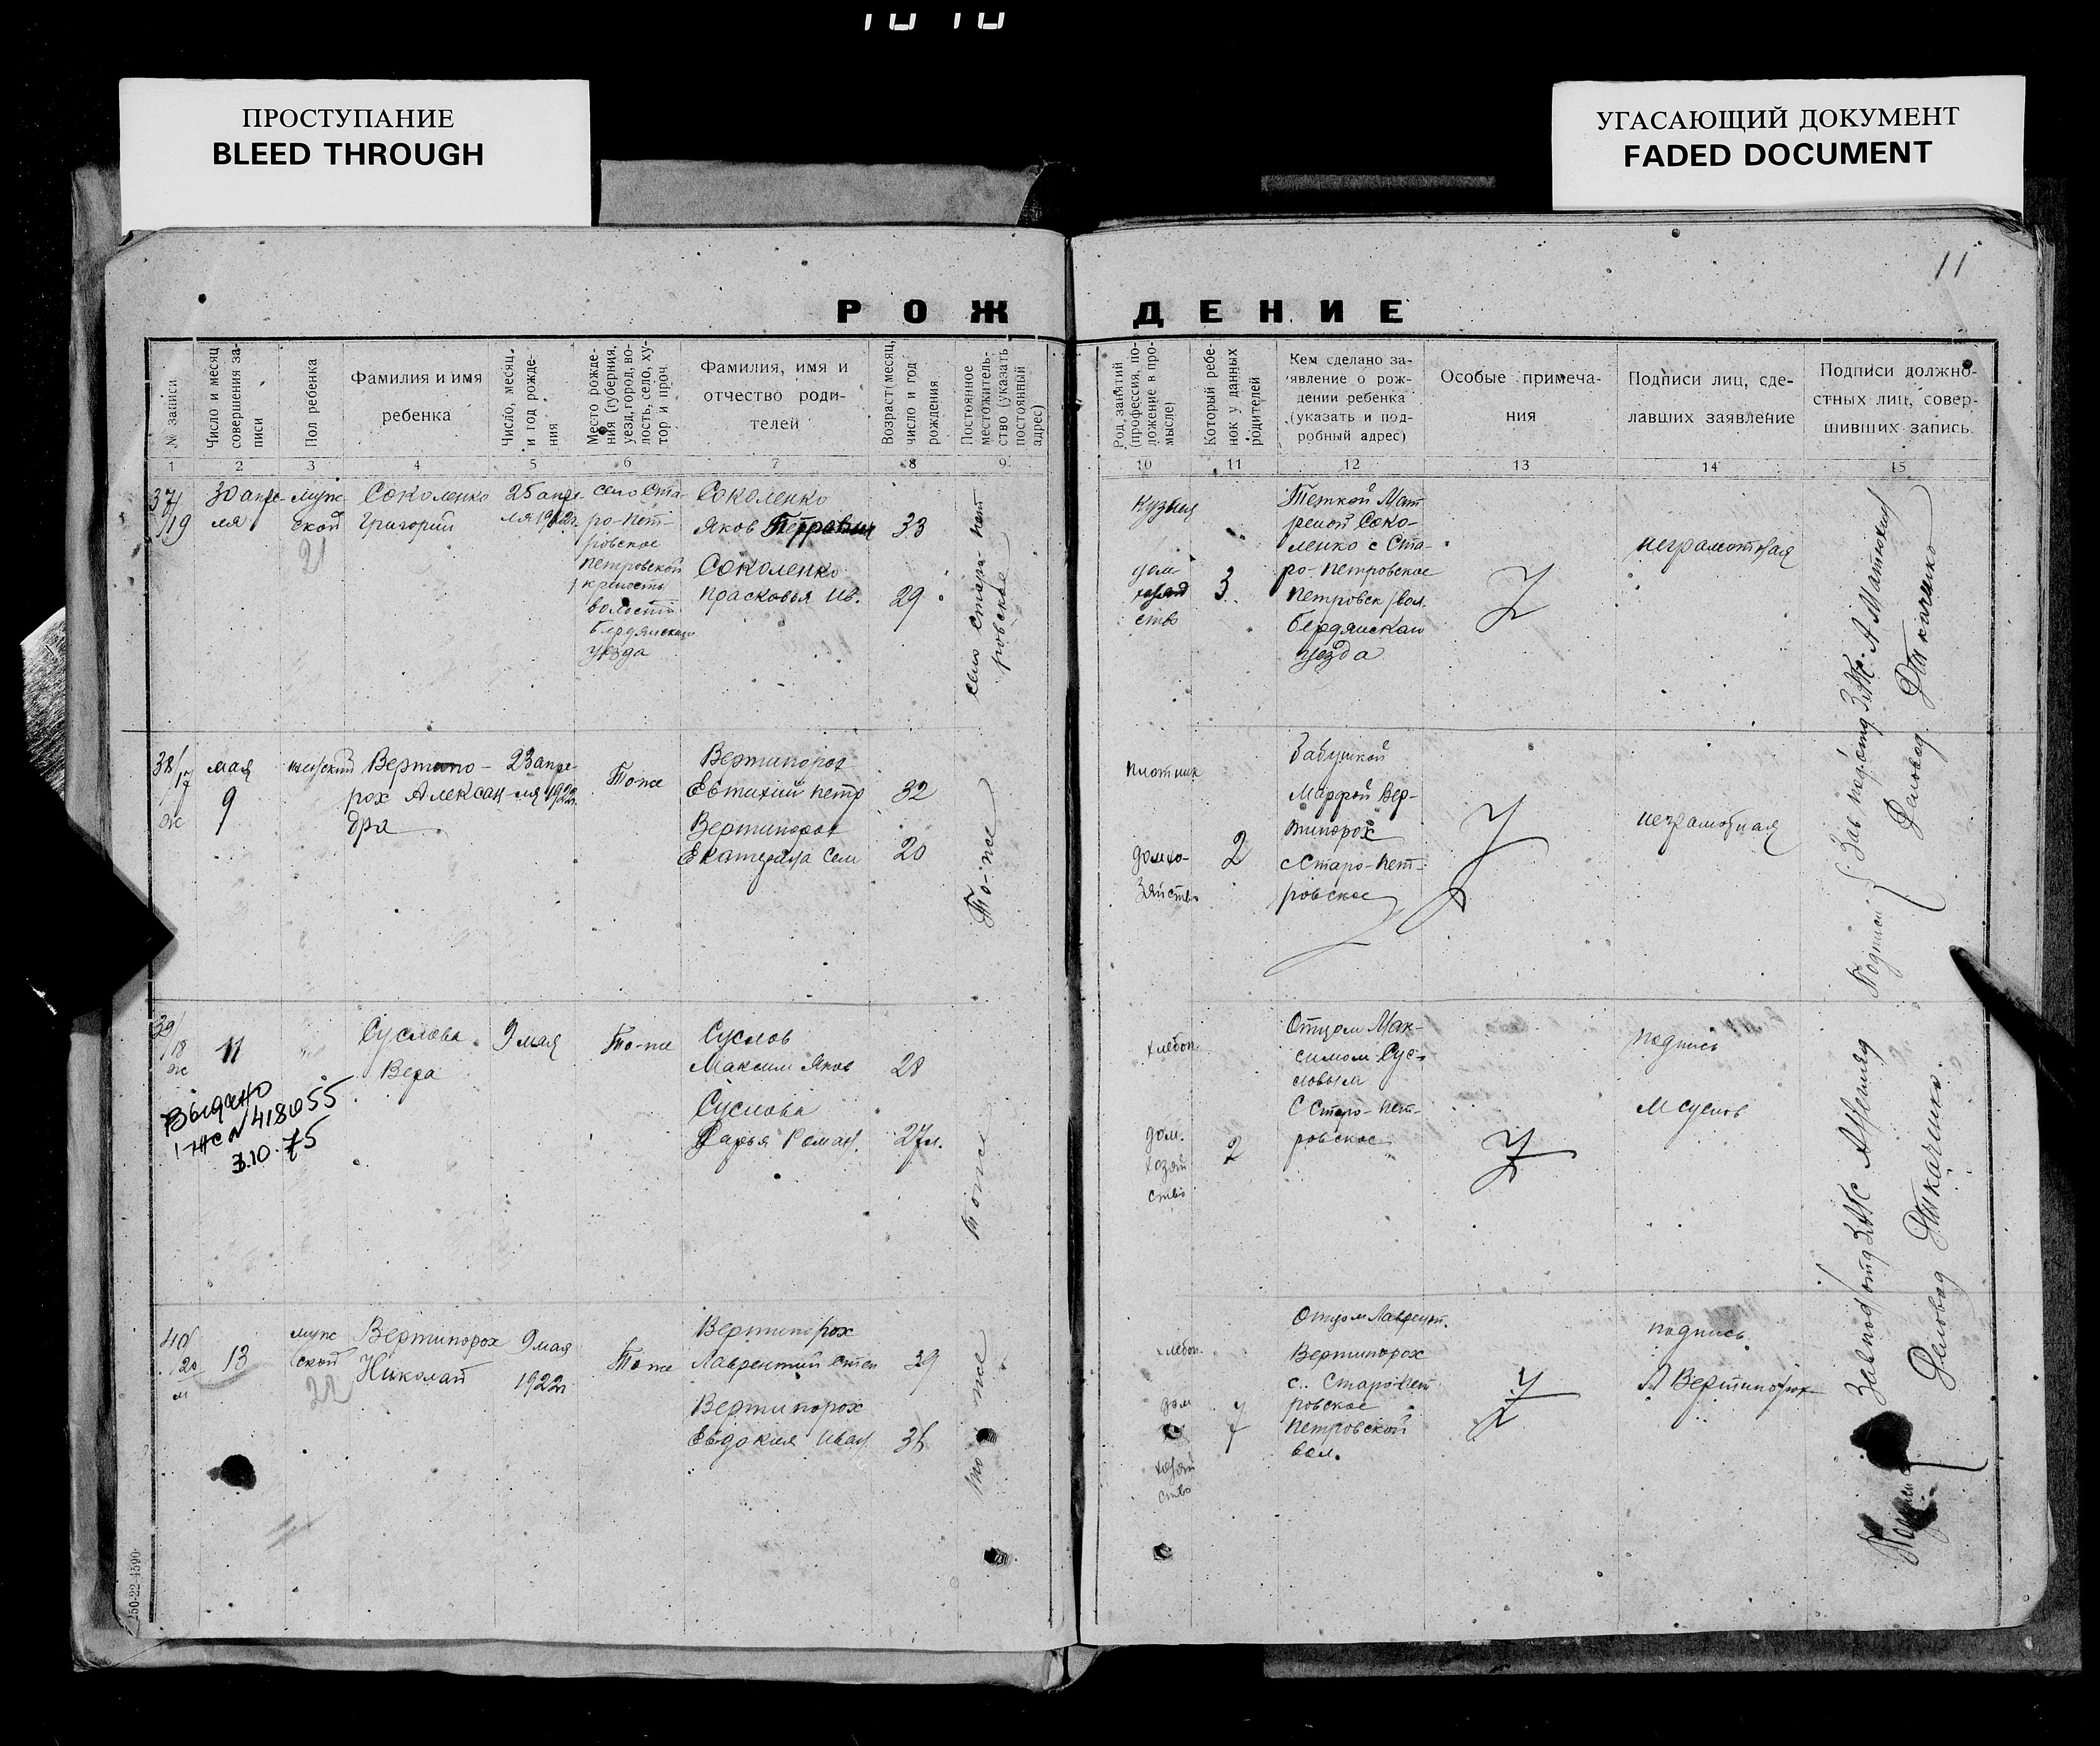 ПРОСТУПАНИЕ
BLEED THROUGH
УГАСАЮЩИЙ ДОКУМЕНТ
FADED DOCUMENT
11
РОЖДЕНИЕ
№ записи
Число и месяц
совершения за-
писи
Пол ребенка
Фамилия и имя
ребенка
Число, месяц,
и год рожде-
ния
Место рожде-
ния (губерния,
уезд, город, во-
лость, село, ху-
тор и проч
Фамилия, имя и
отчество роди-
телей
Возраст месяц,
число и год
рождения
Постоянное
местожитель-
ство (указать
постоянный
адрес)
Род занятий
(профессия, по-
ложение в про-
мысле)
Который ребе-
нок у данных
родителей
Кем сделано за-
явление о рож-
дении ребенка
(указать и под-
робный адрес)
Особые примеча-
ния
Подписи лиц, сде-
лавших заявление
Подписи должно-
стных лиц, совер-
шивших запись
1 2 3 4 5 6 7 8 9 10 11 12 13 14 15
37/
19
30 апре-
ля
муж
ской
21
Соколенко
Григорий
25 апре
ля 1922г.
село Ста-
ро-Пет-
ровское
Петровской
волости
Бердянскаго
уезда
Соколенко
Яков
33
Соколенко
Прасковья Ив.
29
село Старо-Пет
ровское
кузнец
дом-
ство
3.
Теткой Мат
реной Соко-
ленко с Ста-
ро-Петровское
Петровск вол.
Бердянскаго
уезда
неграмотная
38/
17
ж
мая
9
женский
Вертипо-
рох Алексан-
дра
23 апре-
ля 1922г.
То же
Вертипорох
Евтихий Петр
32
Вертипорох
Екатерина Сем
20
То-же
плотник
домхо-
зяйство
2
Бабушкой
Марфой Вер-
типорох
с Старо-Пет-
ровское
неграмотная
39/
18
ж
11
"
Суслова
Вера
9 мая
То-же
Суслов
Максим Яков
28
Суслова
Дарья Роман.
27л.
То же
хлебоп.
дом.
хозяй
ство
2
Отцом Мак-
симом Сус-
ловым
С Старо-Пет-
ровское
подпись
М Суслов
Выдано
№ 418055
3.10.75
40/
20
м
13
муж
ской
22
Вертипорох
Николай
9 мая
1922г.
То же
Вертипорох
Лаврентий Степ
39
Вертипорох
Евдокия Иван
То же
хлебоп.
дом
хозяй
ство
7
Отцом Лаврент.
Вертипорох
с. Старо-Пет
ровское
Петровской
вол.
подпись
Л Вертипорох
Подписи
Деловод Ткаченко
Деловод Ткаченко
250-22-1590